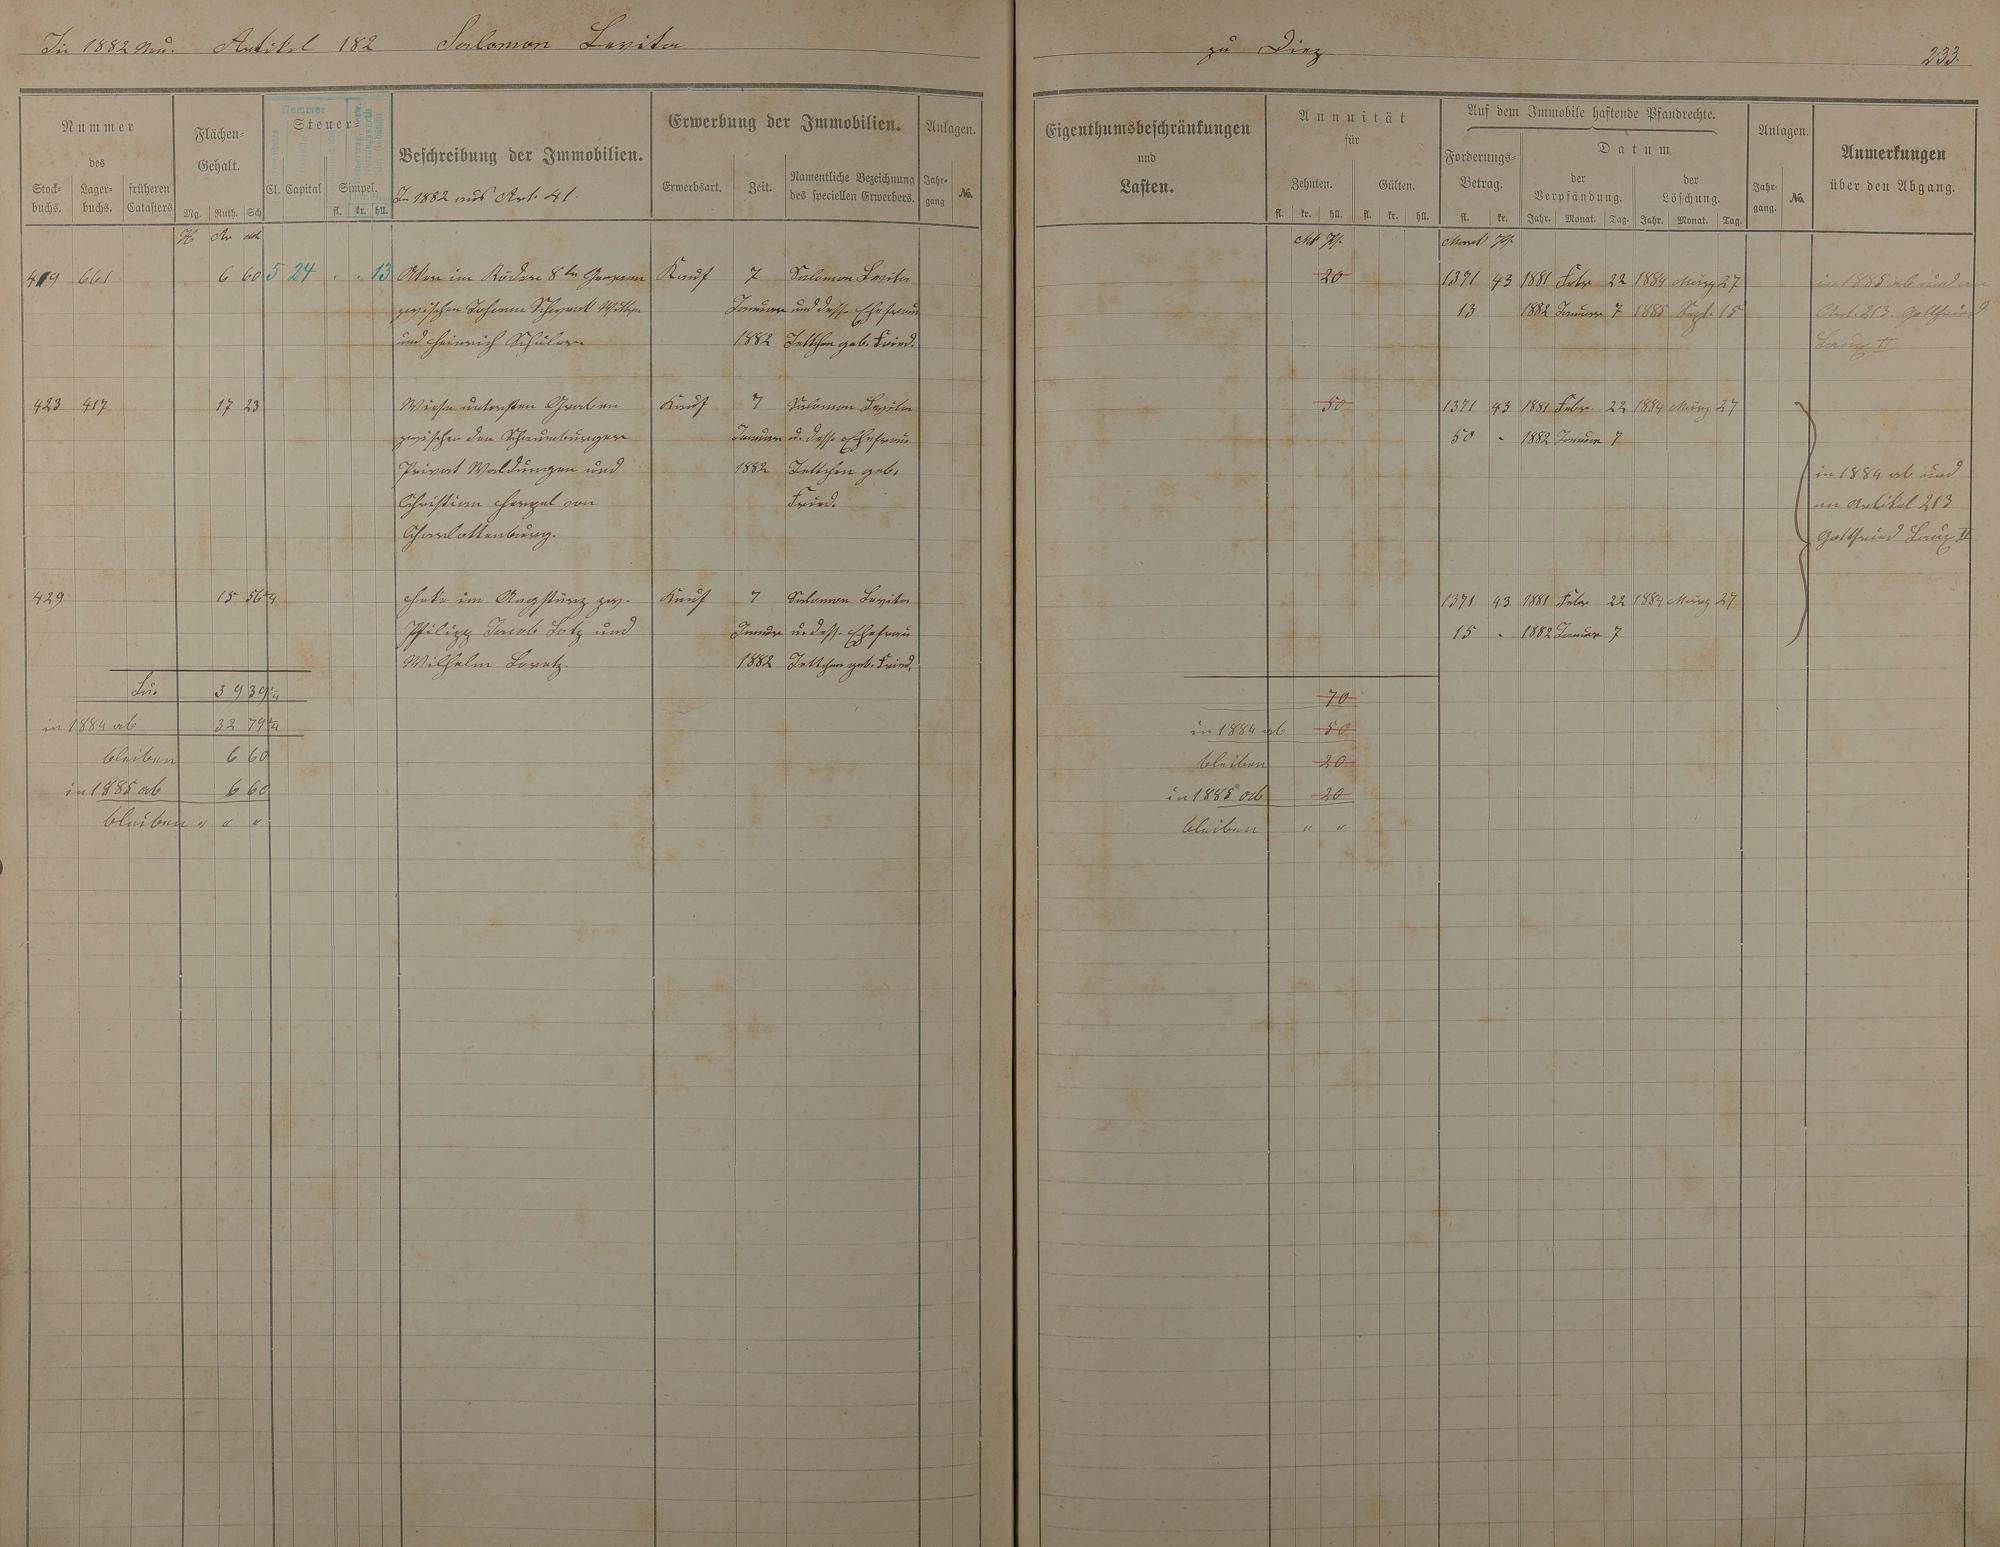 In 1882 Neu. Artikel 182 Salomon Levita
zu Diez
233.
Nummer
des
Stock-buchs. Lager-buchs. früheren Catasters
Flächen-
Gehalt.
Mg. Ruth. Sch
Nummer
Steuer
Cl. Capital Simpel.
fl. kr. hll.
Beschreibung der Immobilien.
In 1882 aus Art. 41.
Erwerbung der Immobilien.
Erwerbsart. Zeit. Namentliche Bezeichnung
des speciellen Erwerbers.
Anlagen.
Jahr-
gang No.
Eigenthumsbeschränkungen
und
Lasten.
Annuität
für
Zehnten. Gülten.
fl. kr. hll. fl. kr. hll.
Auf dem Immobile haftende Pfandrechte.
Forderungs-
Betrag.
fl. kr.
Datum
der
Verpfändung.
Jahr. Monat. Tag.
der
Löschung.
Jahr. Monat. Tag.
Anlagen.
Jahr-
gang. No.
Anmerkungen
über den Abgang.
H Ar
Mk Pf.
Mark Pf.
419 661 6 60 5 24 " " 13 im Röder 8te Gewann Kauf 7 Salomon Levita
zwischen Johann Wittwe Januar und dess. Ehefrau
und Heinrich Schüler. 1882 Jettchen geb. Fried.
20 1371 43 1881 Febr 22 1884 März 27
13 1882 Januar 7 1885 Sept. 15
in 1885 ab und an
Art. 213. Gottfried
Laux II
423 417 17 23 Wiese untersten Graben Kauf 7 Salomon Levita
zwischen den Schaumburger Januar u. dess. Ehefrau
Privat Waldungen und 1882 Jettchen geb.
Christian von Fried.
Charlottenburg.
50 1371 43 1881 Febr. 22 1884 März 27
50 " 1882 Januar 7
in 1884 ab und
an Artikel 213
Gottfried Laux II
429 15 56 1/4 im zw. Kauf 7 Salomon Levita
Philipp Jacob Lotz und Januar u. dess. Ehefrau
Wilhelm 1882 Jettchen geb. Fried.
1371 43 1881 Febr 22 1884 März 27
15 " 1882 Januar 7
Su. 39 39 1/4
in 1884 ab 32 79 1/4
bleiben 6 60
in 1885 ab 6 60
bleiben " " "
70
in 1884 ab 50
bleiben 20
in 1885 ab 20
bleiben " "